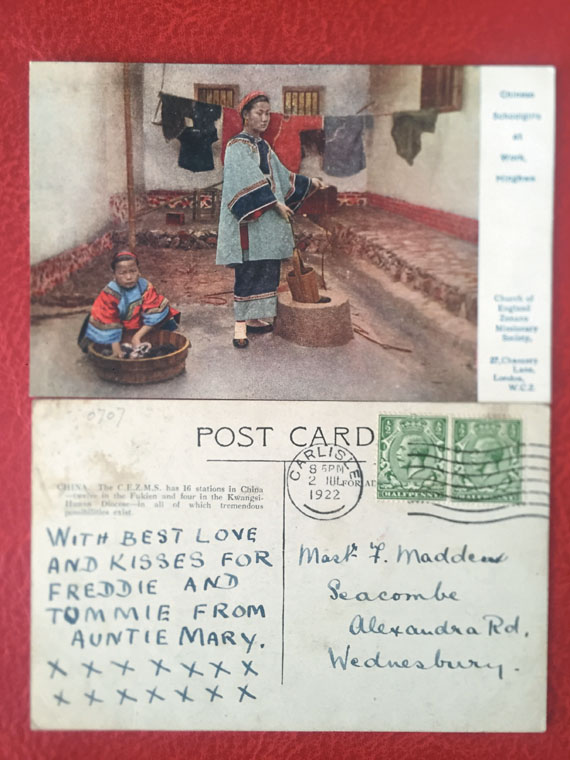 Chinese
Schoolgirls
at
Work,
Hinghwa
Church of
England
Zenana
Missionary
Society,
27, Chancery
Lane,
London,
W.C.2
0707
POST CARD
CHINA. The C.E.Z.M.S. has 16 stations in China
—twelve in the Fukien and four in the Kwangsi-
Hunan Diocese—in all of which tremendous
possibilities exist.
FOR AD
CARLISLE
8 15 PM
2 JUL
1922
HALFPENNY
HALFPENNY
WITH BEST LOVE
AND KISSES FOR
FREDDIE AND
TOMMIE FROM
AUNTIE MARY.
X X X X X X X
X X X X X X X
Mast. F. Madden
Seacombe
Alexandra Rd.
Wednesbury.